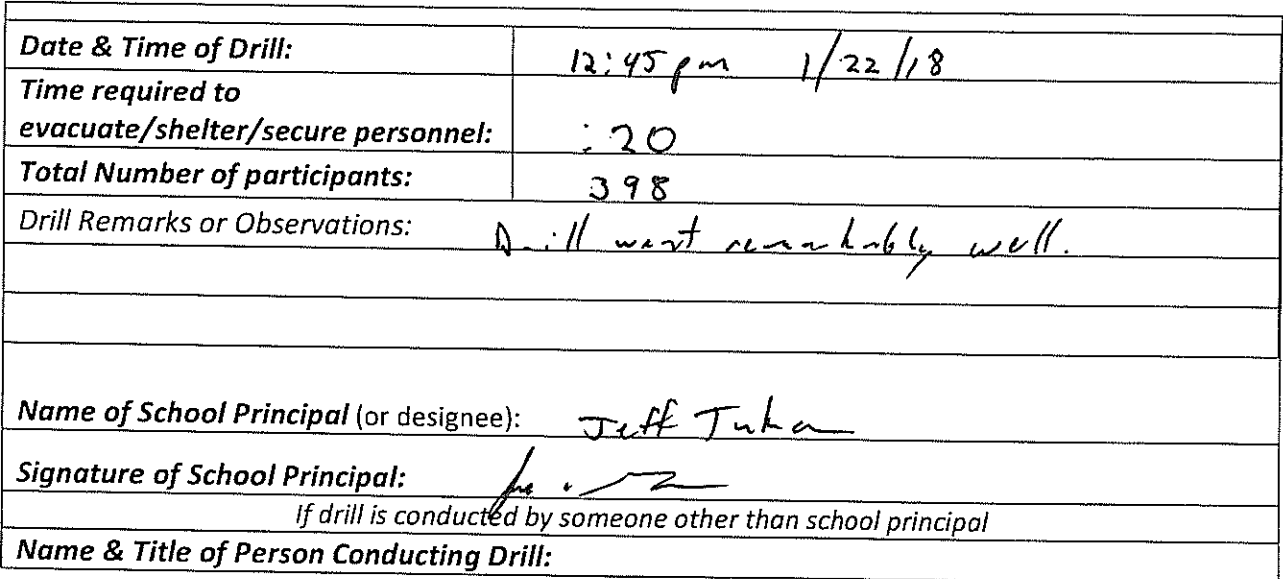 Date & Time of Drill: 12:45 pm 1/22/18
Time required to
evacuate/shelter/secure personnel: :20
Total Number of participants: 398
Drill Remarks or Observations: Drill went remarkably well.
Name of School Principal (or designee): Jeff
Signature of School Principal:
If drill is conducted by someone other than school principal
Name & Title of Person Conducting Drill: